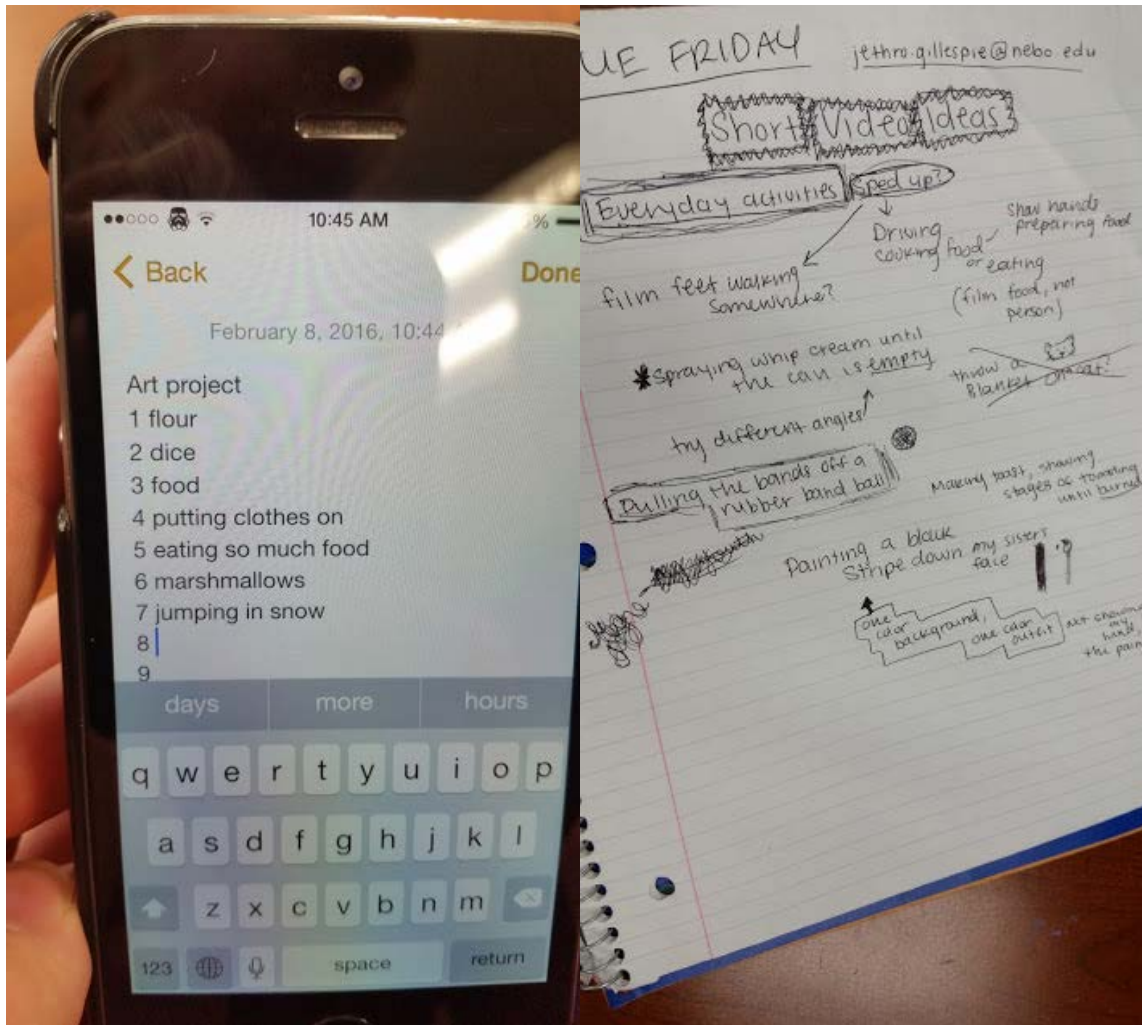 10:45 AM
%
Back
Done
February 8, 2016, 10:44
Art project
1 flour
2 dice
3 food
4 putting clothes on
5 eating so much food
6 marshmallows
7 jumping in snow
8
9
days more hours
q w e r t y u i o p
a s d f g h j k l
z x c v b n m
123 space return
UE FRIDAY
jethro.gillespie@nebo.edu
Short Video Ideas
Everyday activities
Sped up?
Driving
cooking food
or eating
(film food, not
person)
hands
preparing food
film feet walking
somewhere?
*Spraying whip cream until
the can is empty
try different angles
throw a
Blanket on cat?
Pulling the bands off a
rubber band ball
Making toast, showing
stages of toasting
until burned
Painting a black
Stripe down my sister's
face
one
color
background,
one color
outfit
not showing
my
hand
the pain